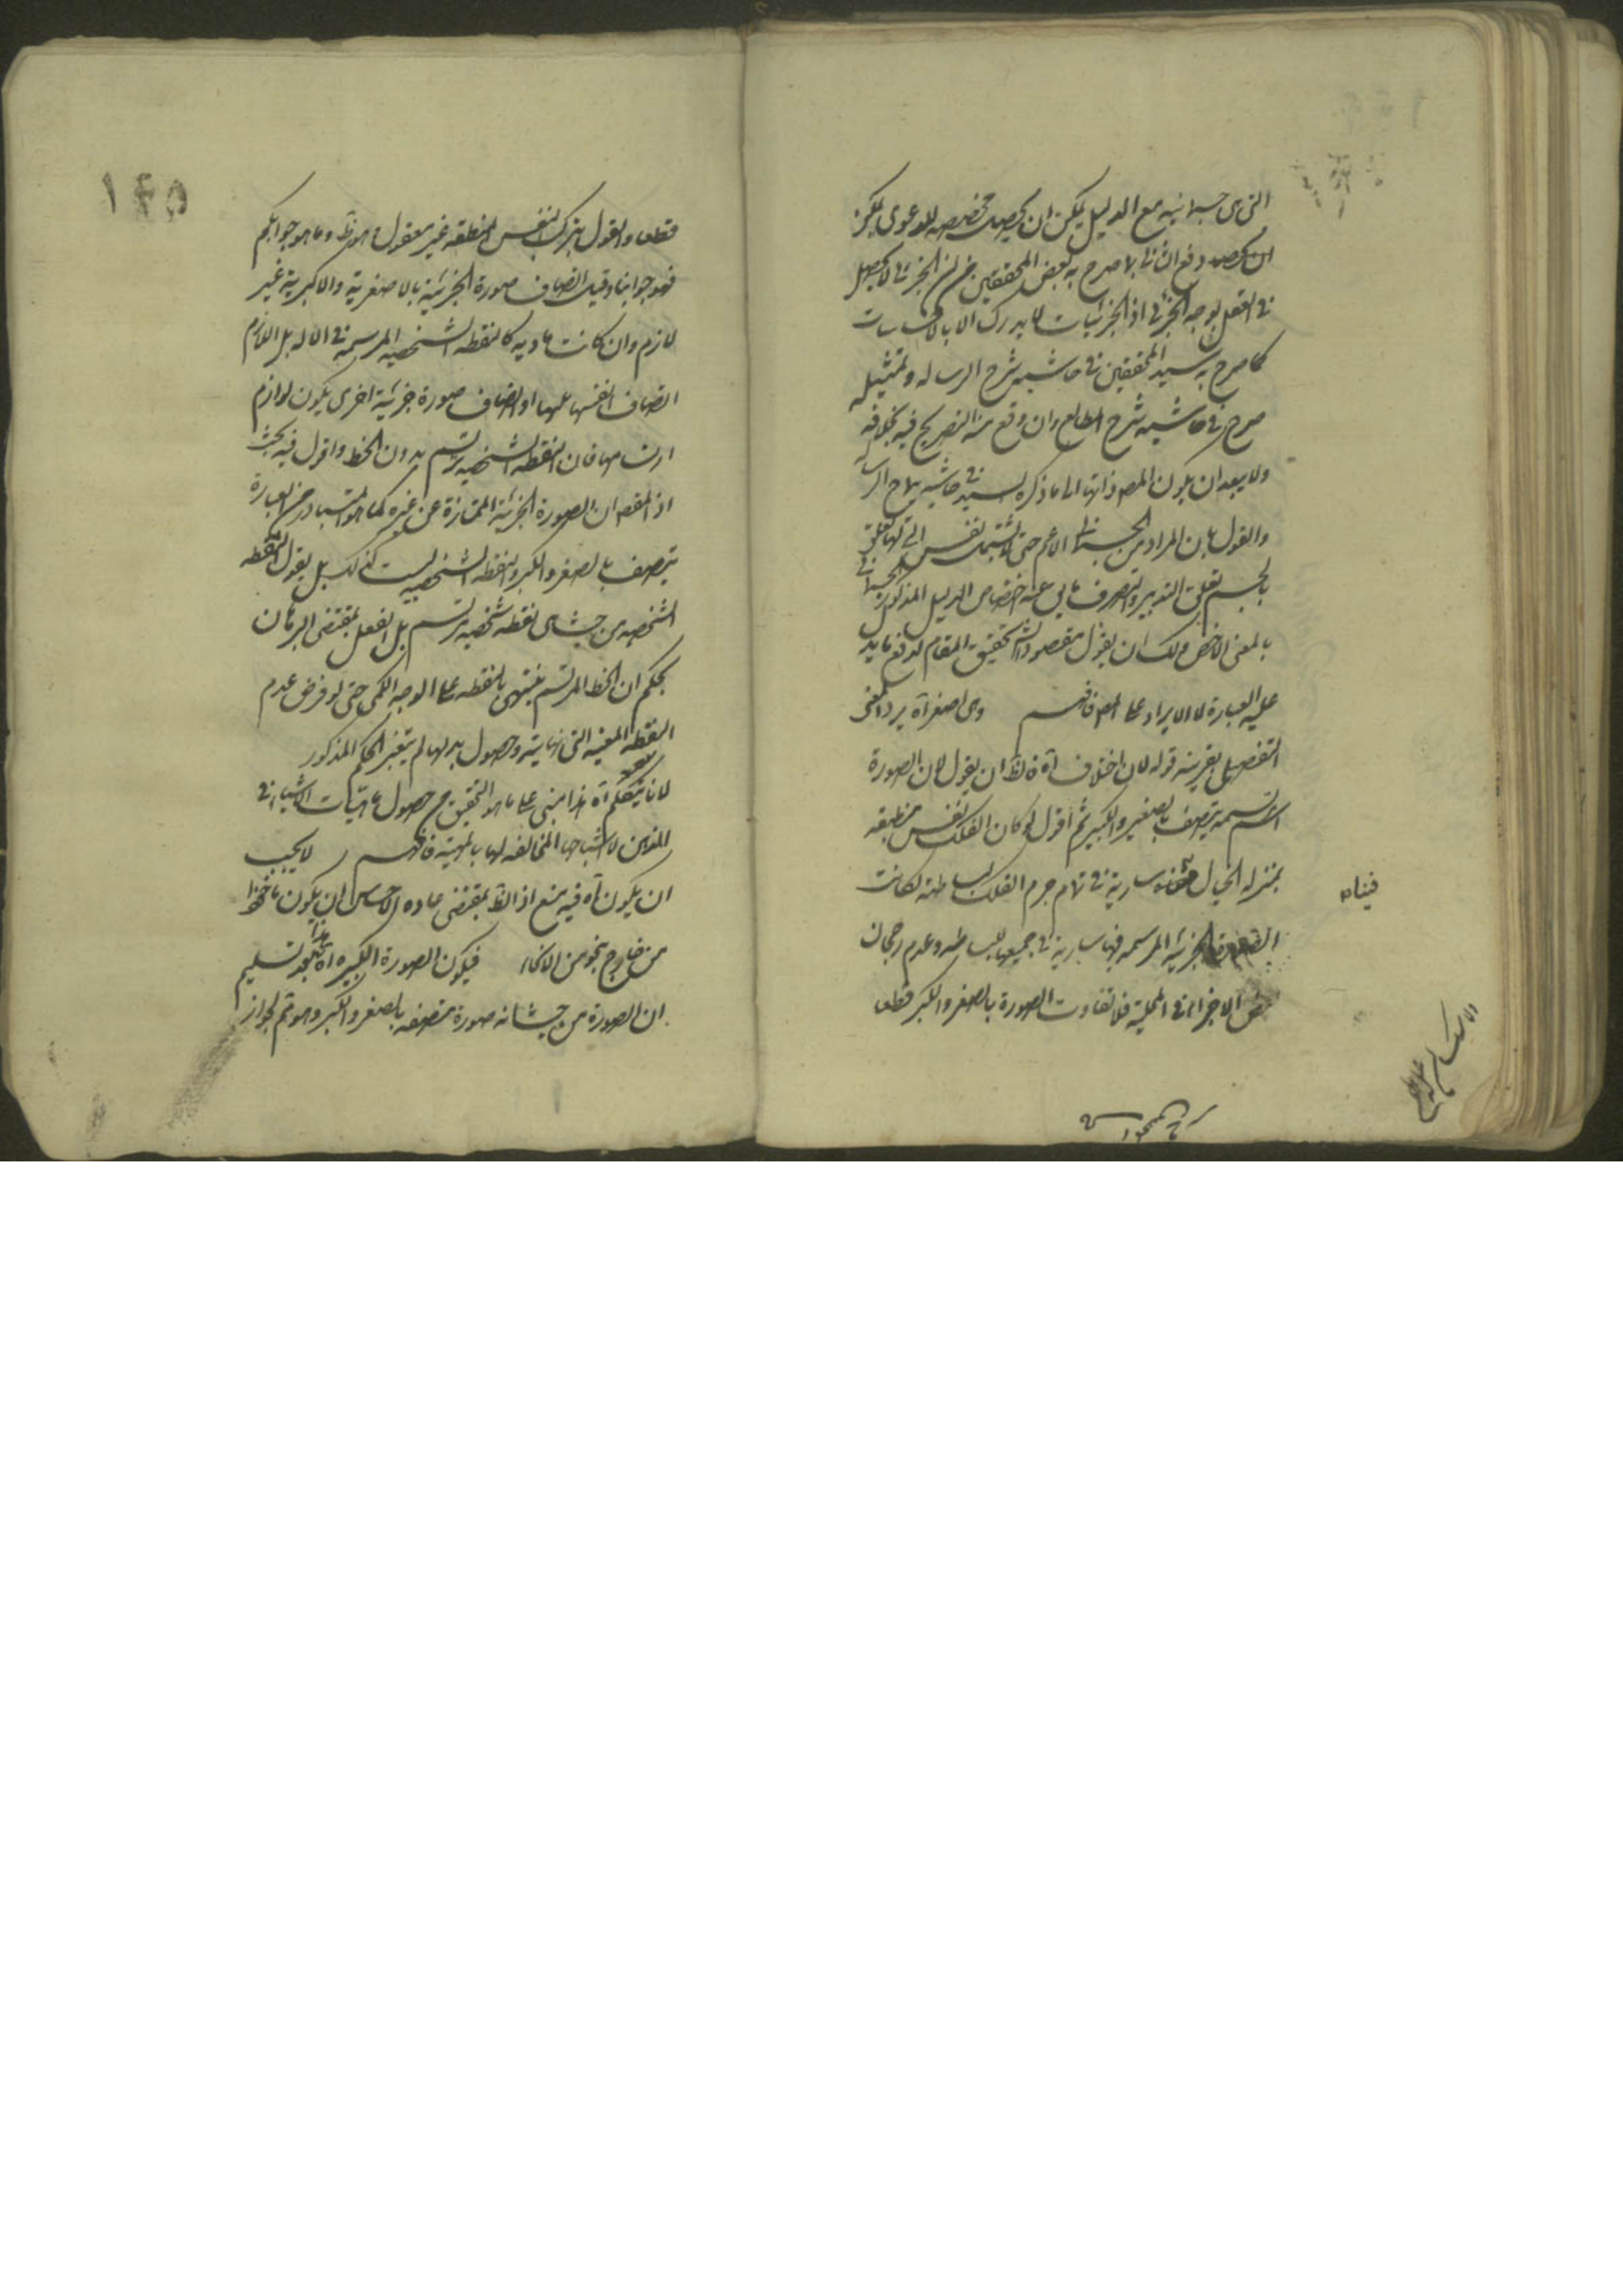 التى هى جسمانية مع الدليل يمكن ان يجعل مخصصه للدعوى يمكن
ان يجعل دفع الثانى بما صرح به بعض المحققين من ان الجزئى لا يحصل
فى العقل بوجه الجزئى اذ الجزئيات لا يدرك الا بالاحساسات
كما صرح به سيد المحققين فى حاشيه شرح الرساله وبمثله
صرح فى حاشيه شرح المطالع وان وقع منه التصريح فيه بخلافه
ولا يبعد ان يكون المص ذاهبا الى ما ذكره السيد فى حاشيه شرح الرسا
والقول بان المراد من الجسمانى الاعم حتى لا يشتمل نفس التى لها تعلق
بالجسم تعلق التدبير والتصرف يابى عنه اختصاص الدليل المذكور بالجسمانى
بالمعنى الاخص ولك ان يقول مقصود الش تحقيق المقام لدفع ما يرد
عليه العبارة لا الايراد على المص فافهم وهى اصغر آه يرد المعنى
التفصيلى بقرينه قوله لان اختلاف آه فالظ ان يقول لان الصورة
المرتسمه يتصف بالصغير والكبير ثم اقول لو كان الفلك نفس منطبقه
بمنزله الخيال فينا سارية فى تمام جرم الفلك لبساطته لكانت
الصورة الجزئيه المرتسمه فيها ساريه فى جميعها للبساطه وعدم رجحان
بعض الاجزاء فى المحلية فلا تفاوت الصورة بالصغر والكبر قطعا
فيناه
١٤٥
قطعا والقول بتركب النفس المنطبقه غير معقول فهو ظ وما هو جوابكم
فهو جوابنا وقيل اتصاف صورة الجزئية بالاصغرية والاكبرية غير
لازم وان كانت ماديه كالنقطه الشخصيه المرتسمه فى الاله بل اللازم
اتصاف انفسها بهما او اتصاف صورة جزئية اخرى يكون لوازم
ارتسامها فان النقطه الشخصيه يرتسم بدون الخط واقول فيه بحث
اذ المقص ان الصورة الجزئية الممتازة عن غيره كما هو المتبادر من العبارة
يتصف بالصغر والكبر والنقطه الشخصيه ليست كذلك بل يقول النقطه
الشخصيه من حيث هى نقطه شخصيه يرتسم بل العقل بمقتضى البرهان
يحكم ان الخط المرتسم ينتهى بالنقطه على الوجه الكلى حتى لو فرض عدم
النقطه المعينه التى نهايته وحصول بدلها لم يتغير الحكم المذكور
لانا نتكلم آه هذا مبنى على ما هو التحقيق من حصول ماهيات الاشياء فى
الذهن لا اشباحها المخالفه لها بالمهية فافهم لا يجب
ان يكون آه فيه منع اذ الظ بمقتضى ماده الاحساس ان يكون ماخوذا
من خارج بنحو من الانحاء فيكون الصورة الكبيره آه هذا بعد تسليم
ان الصورة من حيث انه صورة متصفه بالصغر والكبر وهو ثم لجواز